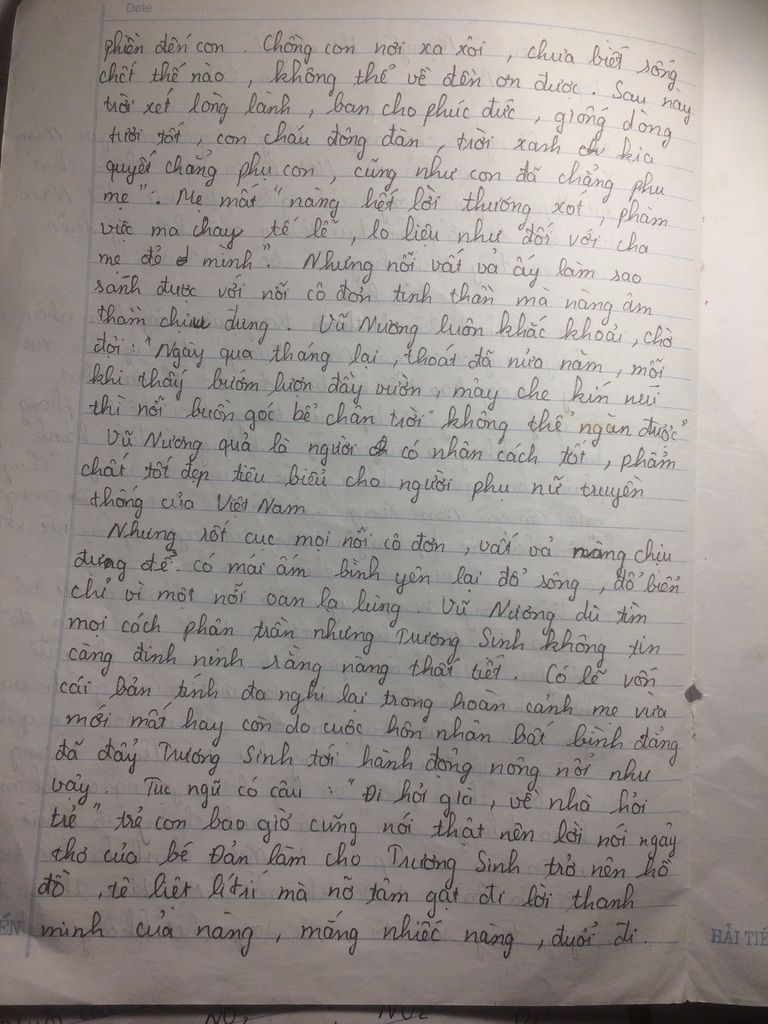 Date
phiền đến con. Chồng con nơi xa xôi, chưa biết sống
chết thế nào, không thể về đền ơn được. Sau này
trời xét lòng lành, ban cho phúc đức, giống dòng
tươi tốt, con cháu đông đàn, trời xanh kia
quyết chẳng phụ con, cũng như con đã chẳng phụ
mẹ". Mẹ mất "nàng hết lời thương xót, phàm
việc ma chay tế lễ, lo liệu như đối với cha
mẹ đẻ mình". Nhưng nỗi vất vả ấy làm sao
sánh được với nỗi cô đơn tinh thần mà nàng âm
thầm chịu đựng. Vũ Nương luôn khắc khoải, chờ
đợi: "Ngày qua tháng lại, thoát đã nửa năm, mỗi
khi thấy bướm lượn đầy vườn, mây che kín núi
thì nỗi buồn góc bể chân trời không thể ngăn được"
Vũ Nương quả là người có nhân cách tốt, phẩm
chất tốt đẹp tiêu biểu cho người phụ nữ truyền
thống của Việt Nam.
Nhưng rốt cục mọi nỗi cô đơn, vất vả nàng chịu
đựng để có mái ấm bình yên lại đổ sông, đổ biển
chỉ vì một nỗi oan lạ lùng. Vũ Nương dù tìm
mọi cách phân trần nhưng Trương Sinh không tin
càng đinh ninh rằng nàng thất tiết. Có lẽ vốn
cái bản tính đa nghi lại trong hoàn cảnh mẹ vừa
mới mất hay còn do cuộc hôn nhân bất bình đẳng
đã đẩy Trương Sinh tới hành động nông nổi như
vậy. Tục ngữ có câu: "Đi hỏi già, về nhà hỏi
trẻ" trẻ con bao giờ cũng nói thật nên lời nói ngây
thơ của bé Đản làm cho Trương Sinh trở nên hồ
đồ, tê liệt lí trí mà nỡ tâm gạt đi lời thanh
minh của nàng, mắng nhiếc nàng, đuổi đi.
HẢI TIẾ